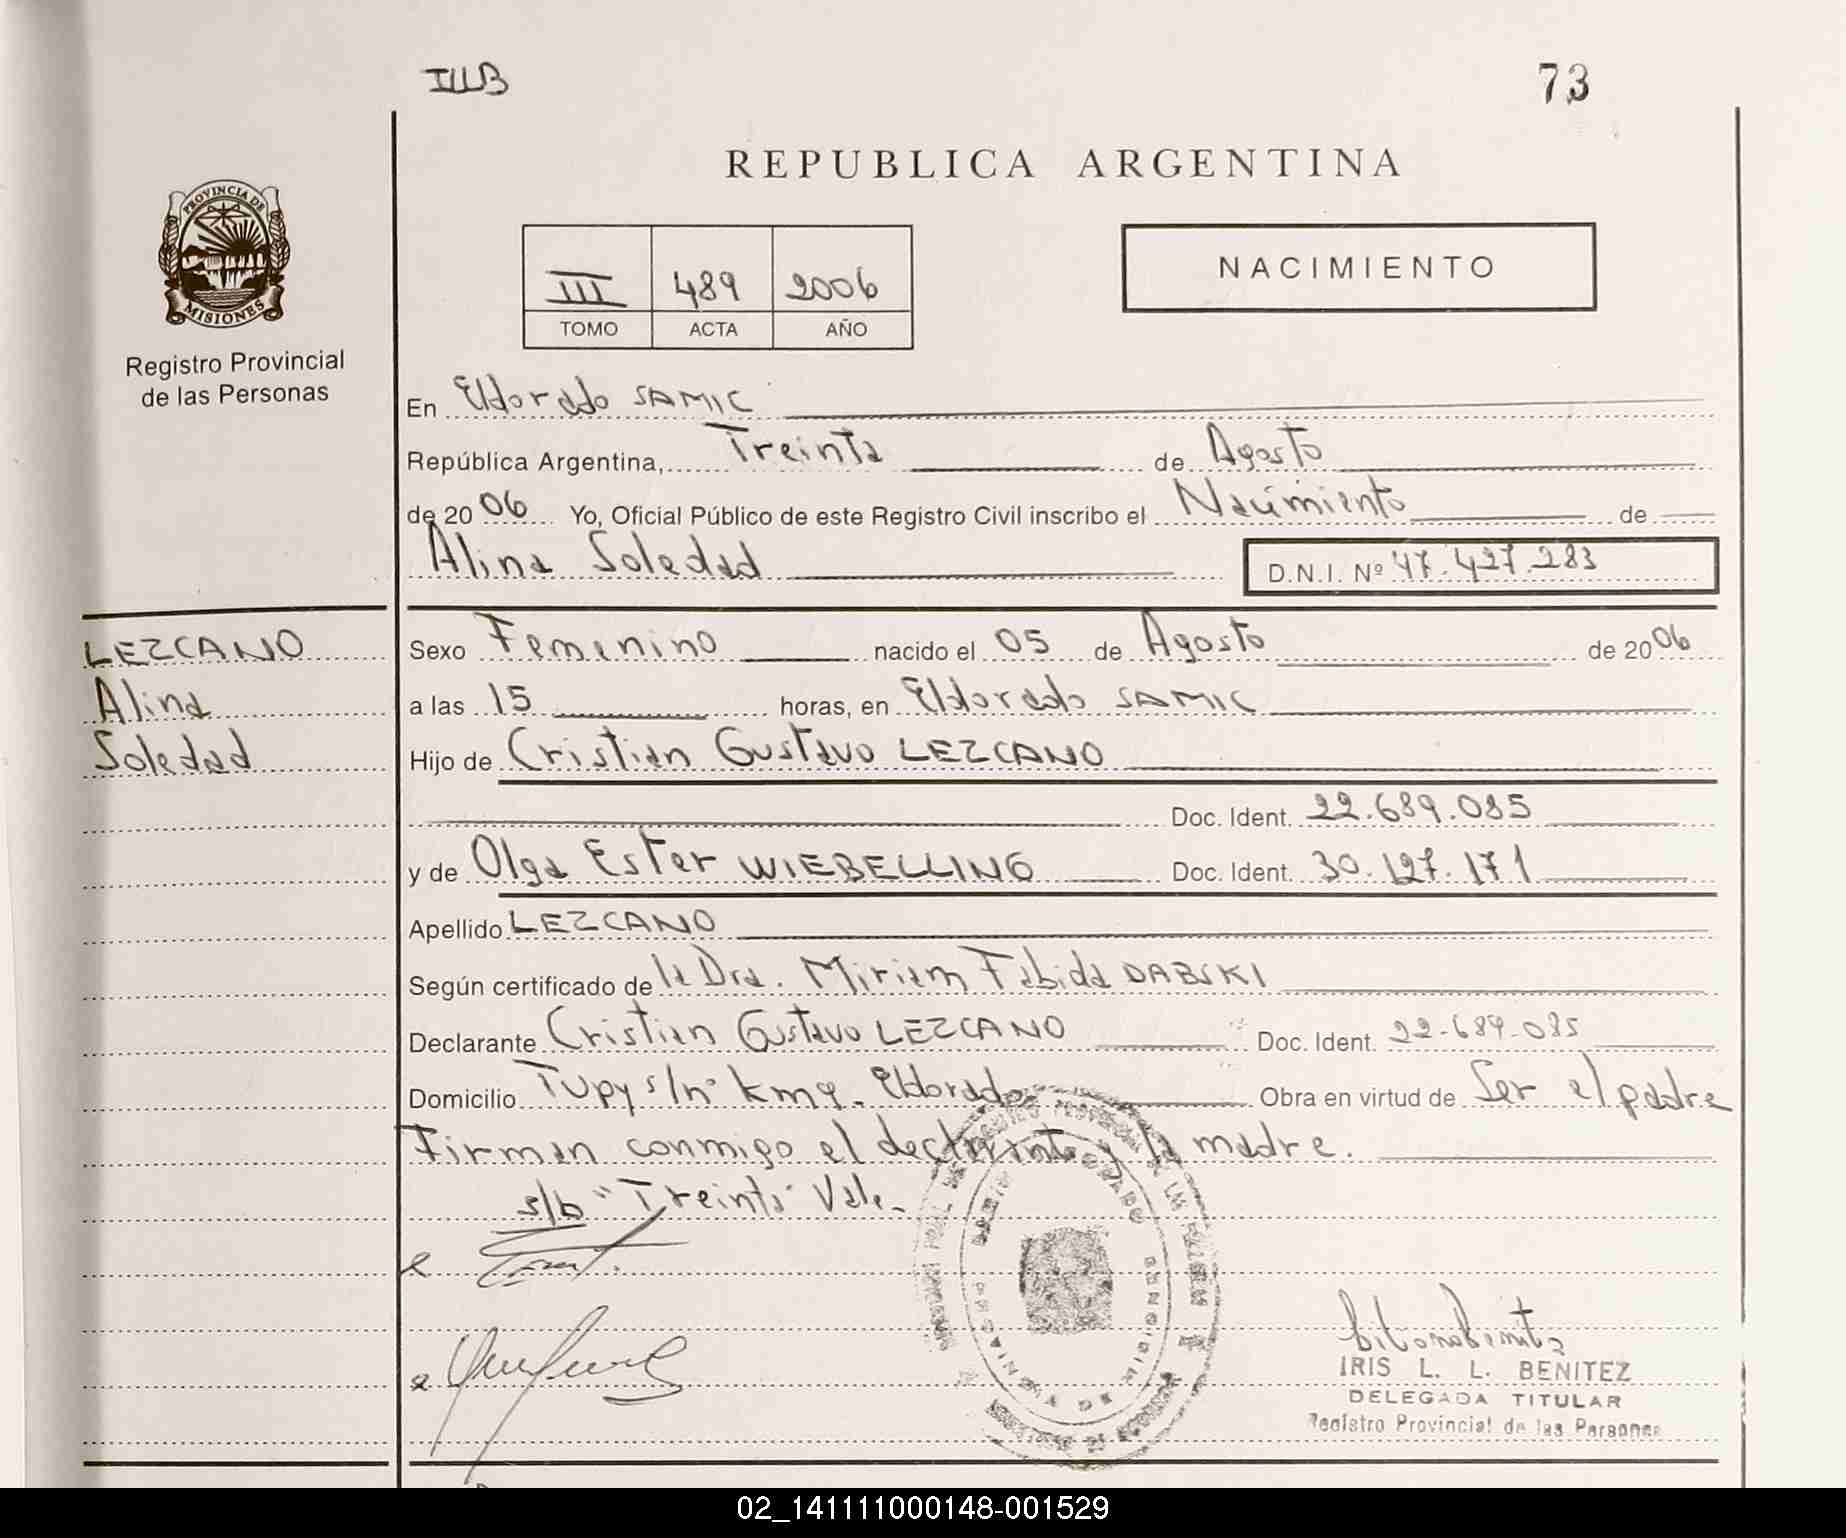 ILLB
73
REPUBLICA ARGENTINA
PROVINCIA DE
MISIONES
Registro Provincial
de las Personas
III 489 2006
TOMO ACTA AÑO
NACIMIENTO
En Eldorado SAMIC
República Argentina, Treinta de Agosto
de 2006 Yo, Oficial Público de este Registro Civil inscribo el Nacimiento de
Alina Soledad D.N.I. Nº 47.427.283
LEZCANO
Alina
Soledad
Sexo Femenino nacido el 05 de Agosto de 2006
a las 15 horas, en Eldorado SAMIC
Hijo de Cristian Gustavo LEZCANO
Doc. Ident. 22.689.085
y de Olga Ester WIEBELLING Doc. Ident. 30.127.171
Apellido LEZCANO
Según certificado de la Dra. Miriam Fabida DABSKI
Declarante Cristian Gustavo LEZCANO Doc. Ident. 22-689-085
Domicilio Tupy s/nº km 9. Eldorado Obra en virtud de Ser el padre
Firman conmigo el declarante y la madre.
s/b "Treinta" Vale.
IRIS L. L. BENITEZ
DELEGADA TITULAR
Registro Provincial de las Personas
02_141111000148-001529